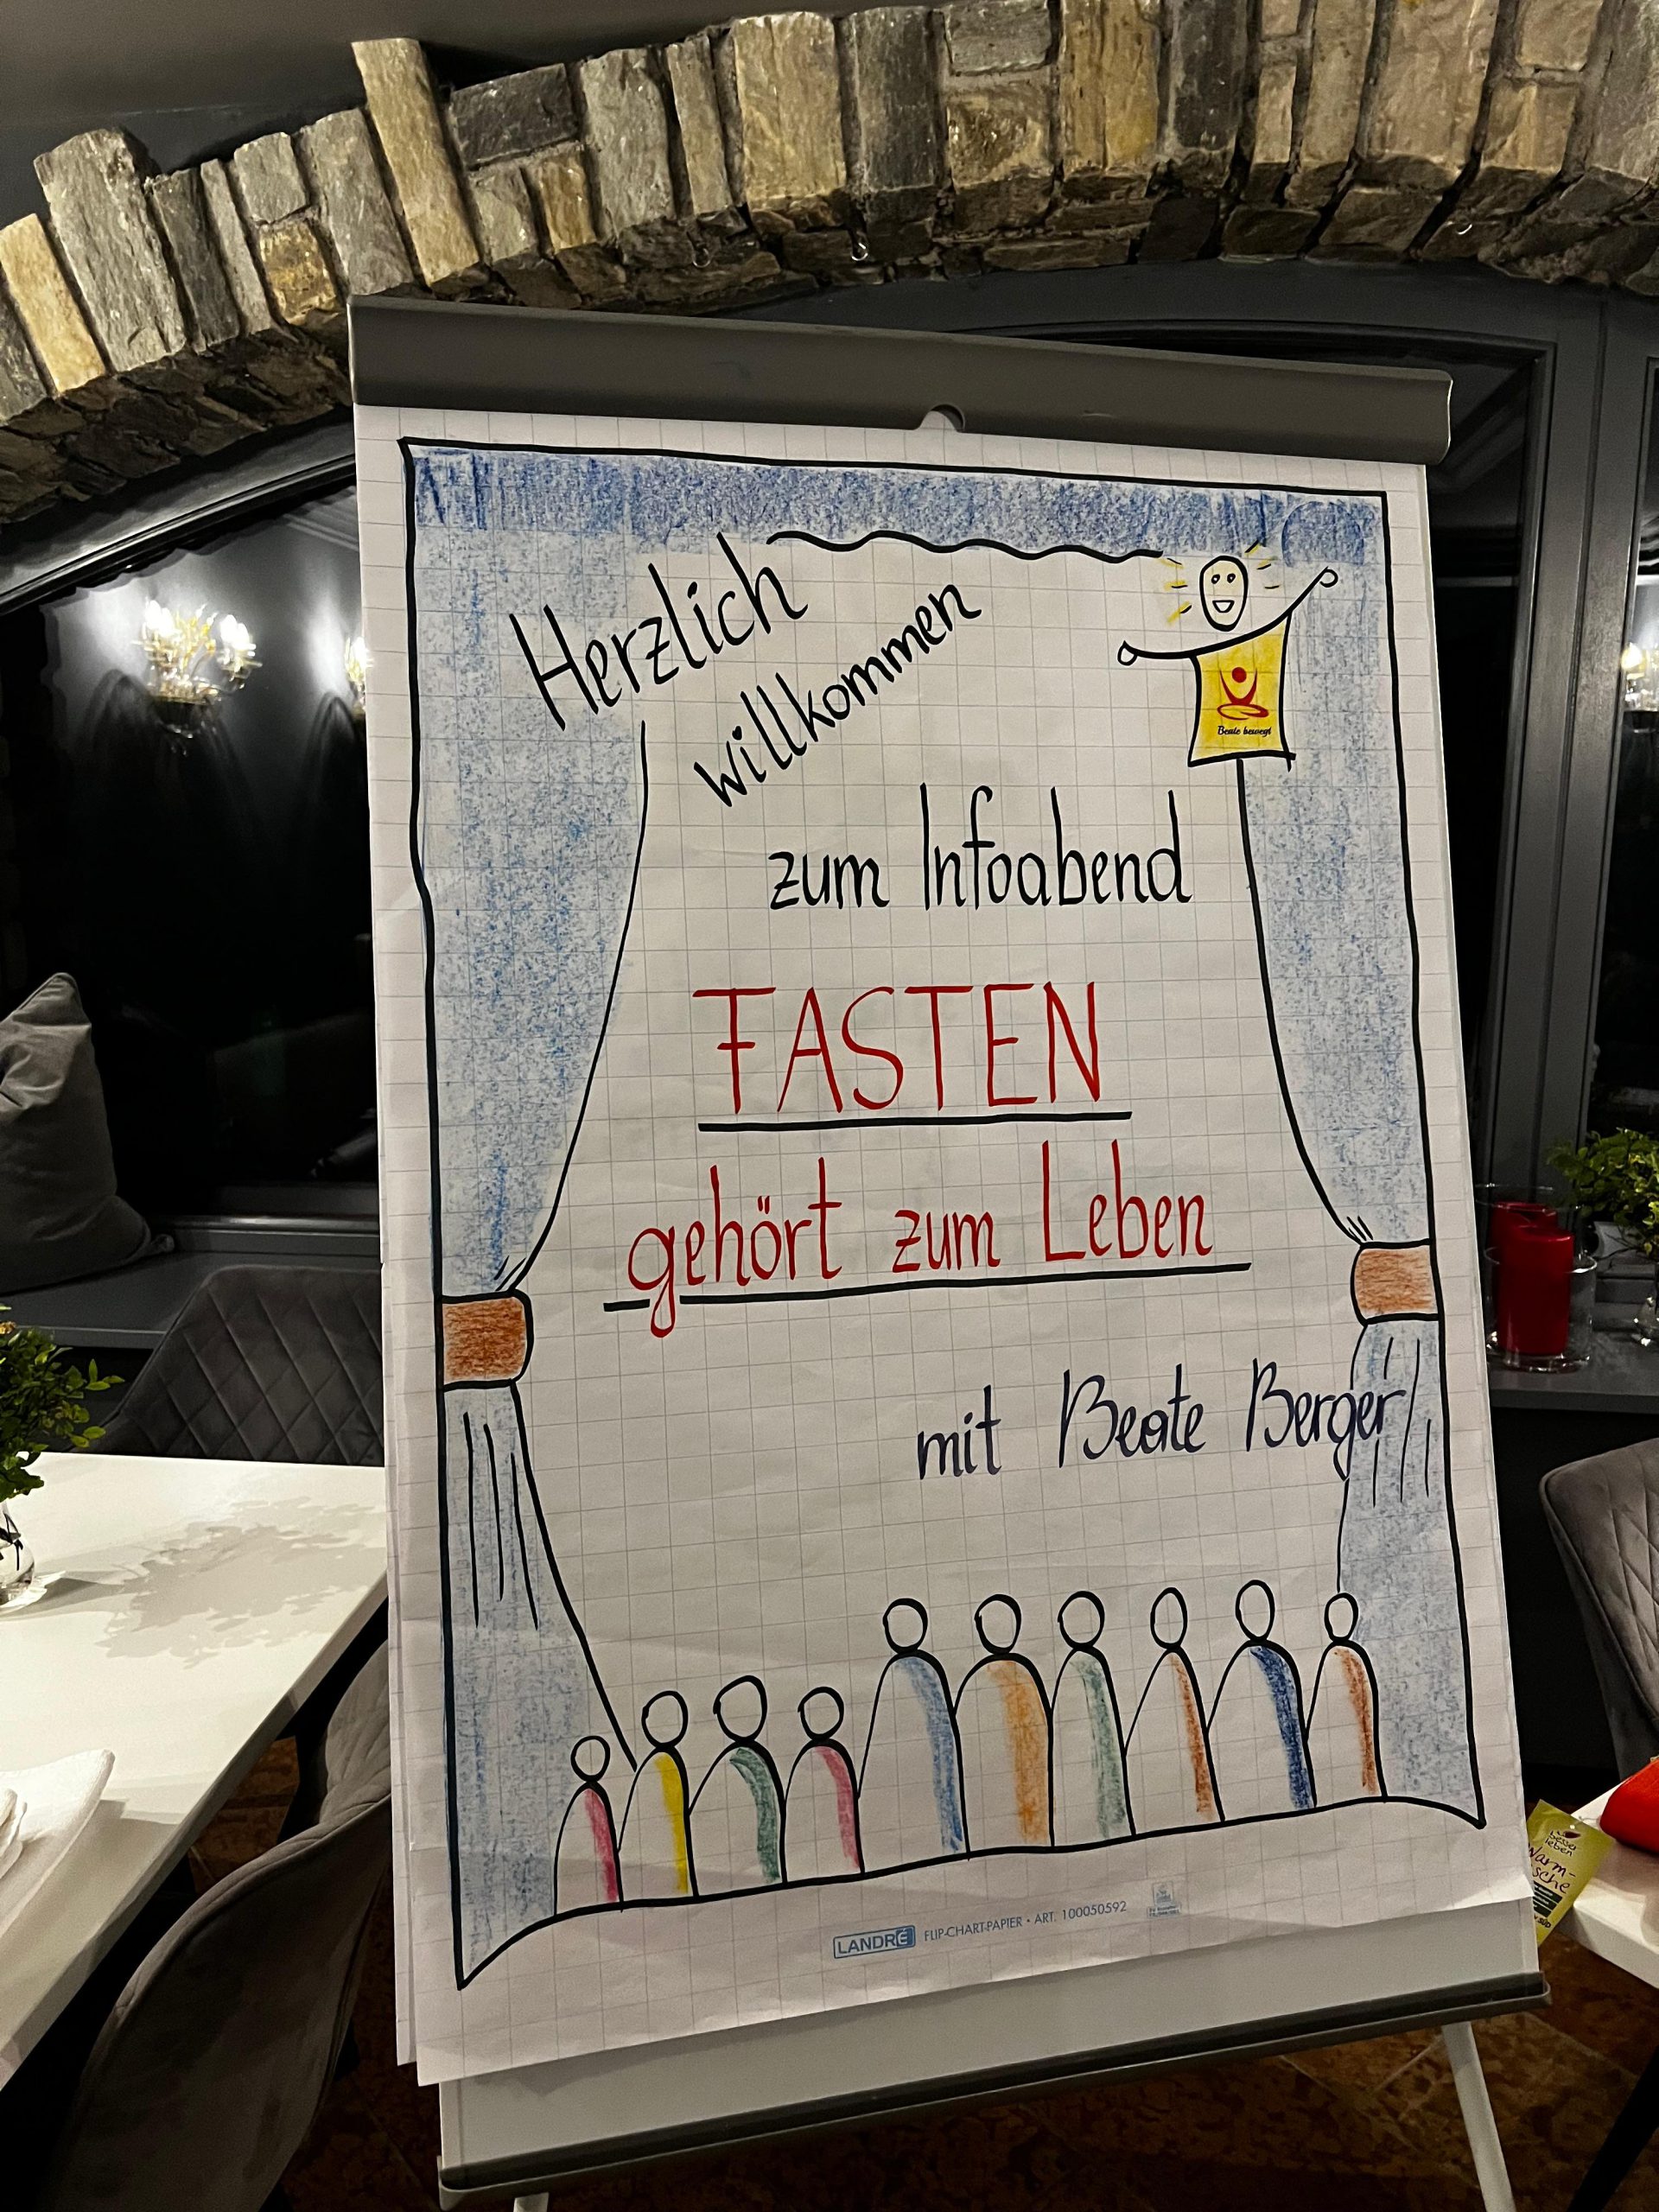 Herzlich
willkommen
Beate bewegt
zum Infoabend
FASTEN
gehört zum Leben
mit Beate Berger
LANDRÉ FLIP-CHART-PAPIER • ART. 100050592
besser
leben